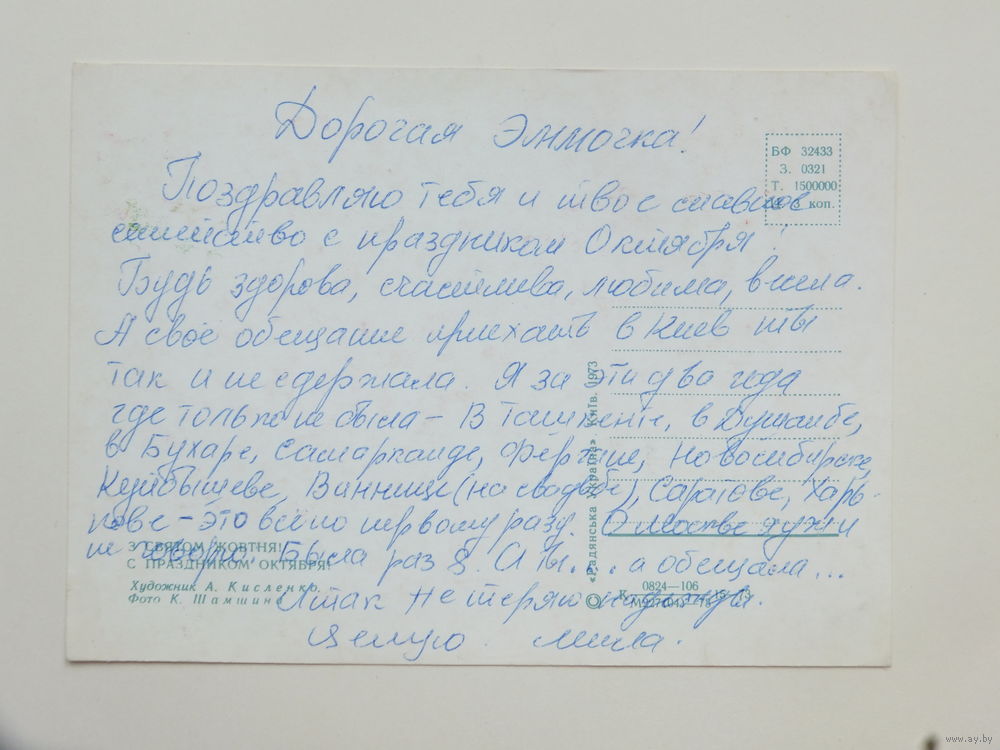 Дорогая Эммочка!
Поздравляю тебя и твое славное
семейство с праздником Октября!
Будь здорова, счастлива, любима, весела.
А свое обещание приехать в Киев ты
так и не сдержала. Я за эти два года
где только не была – в Ташкенте, в Душанбе,
в Бухаре, Самарканде, Фергане, Новосибирске,
Куйбышеве, Виннице (на свадьбе), Саратове, Харь-
кове – это все по первому разу. О Москве уж и
не говорю. Была раз 8. А ты... а обещала...
Итак не теряю надежды.
Целую. Мила.
БФ 32433
З. 0321
Т. 1500000
Ц. 3 коп.
З СВЯТОМ ЖОВТНЯ!
С ПРАЗДНИКОМ ОКТЯБРЯ!
Художник А. Кисленко.
Фото К. Шамшина
«Радянська Україна» Київ. 1973
0824—106
www.ay.by